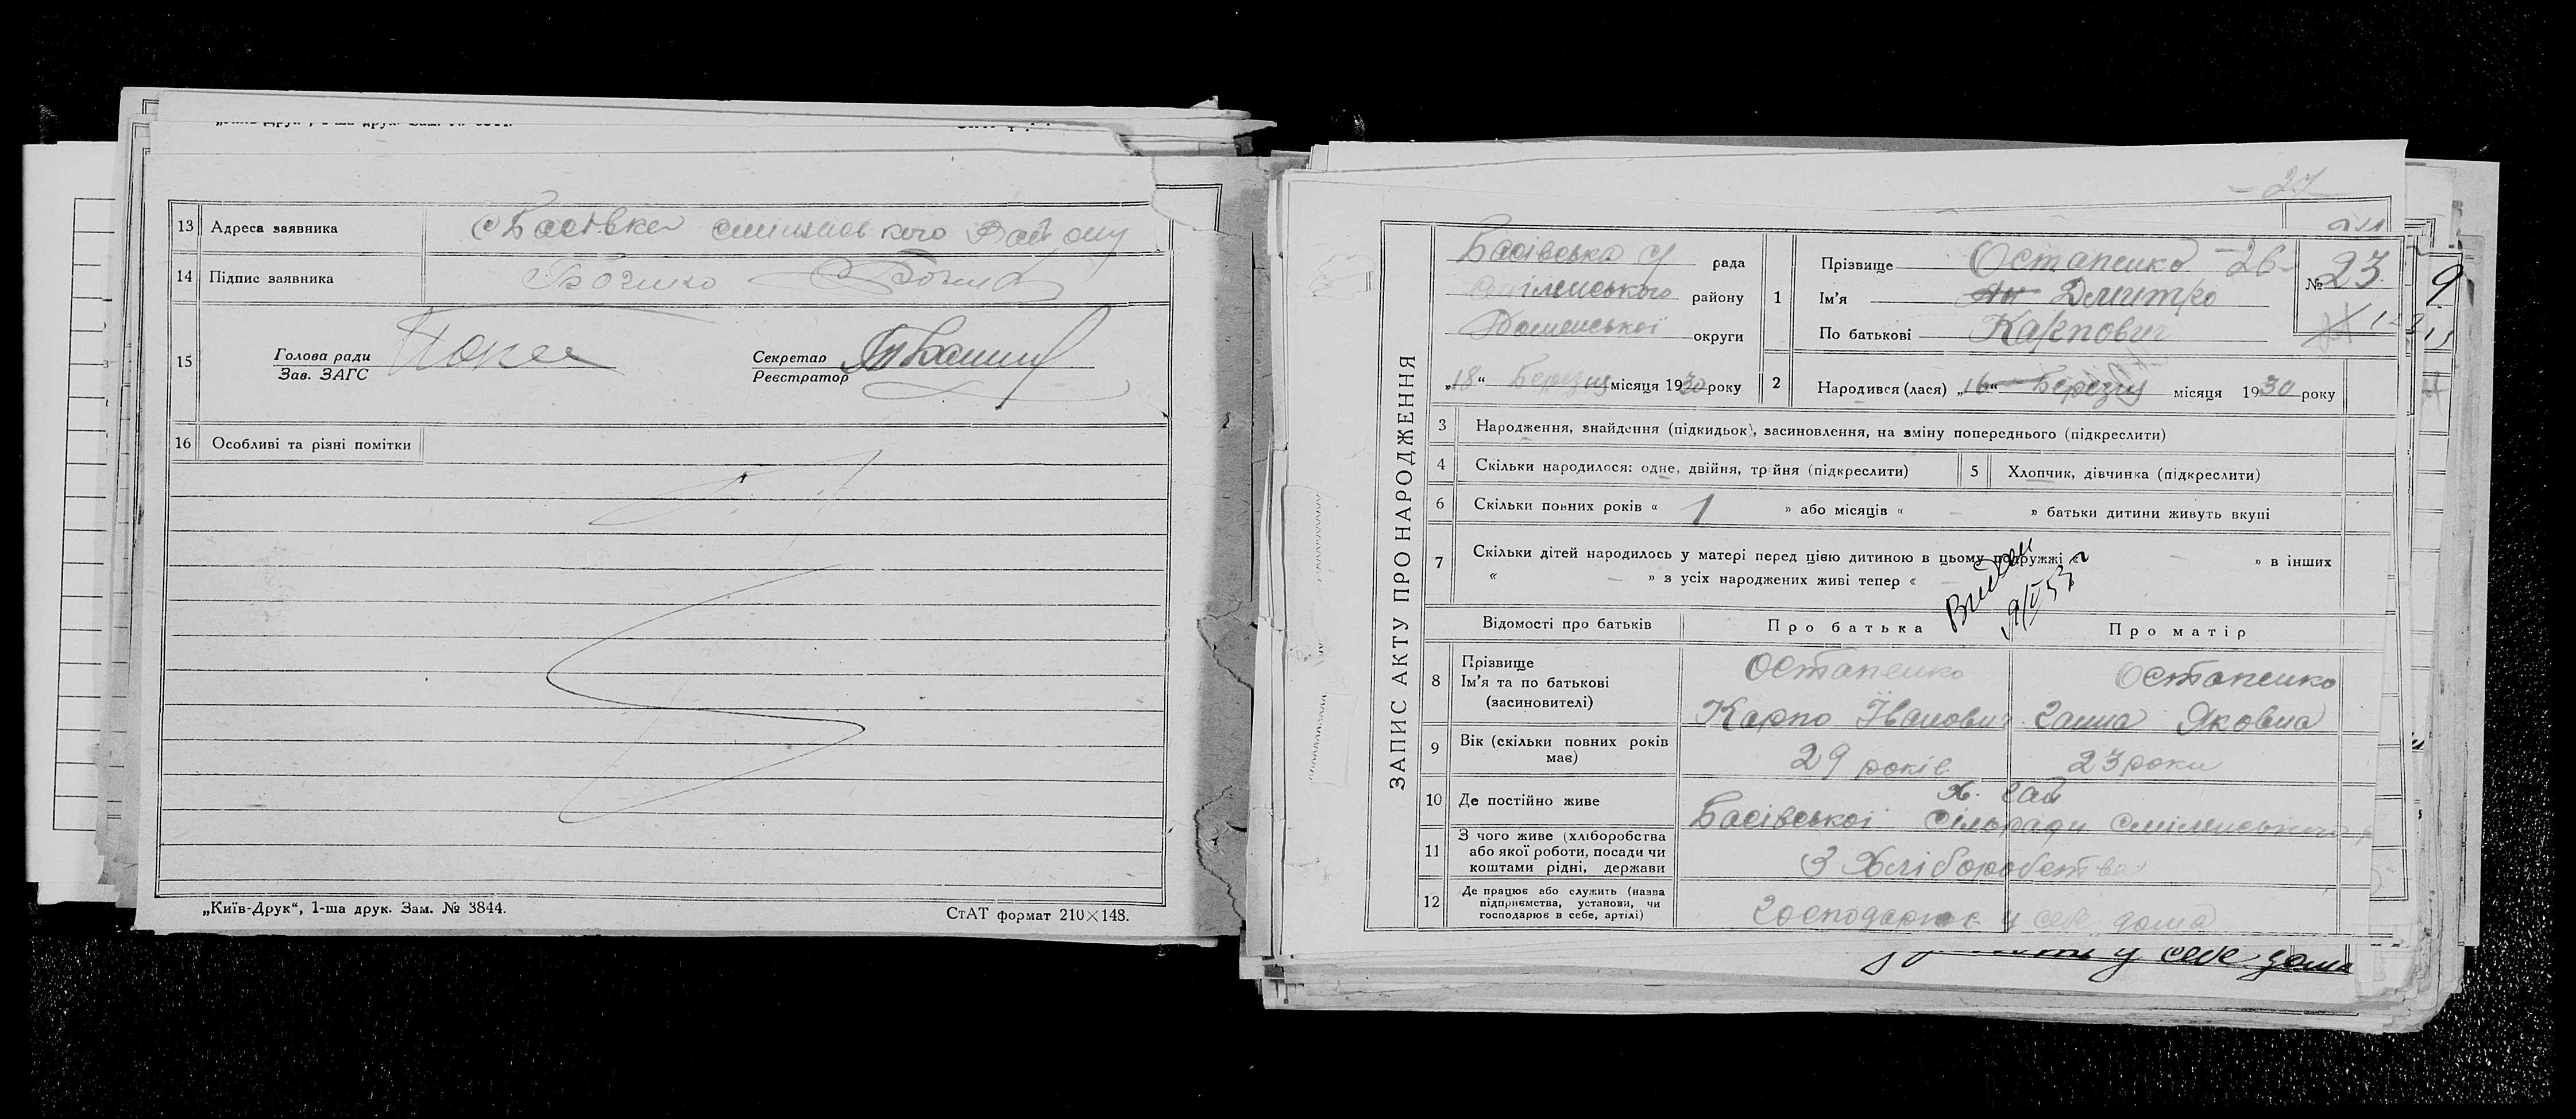 13 Адреса заявника с Басівка смілянського Району
14 Підпис заявника Бочико
15 Голова ради
Зав. ЗАГС
Секретар
Реєстратор
16 Особливі та різні помітки
„Київ-Друк“, 1-ша друк. Зам. № 3844.
СтАТ формат 210×148.
27
ЗАПИС АКТУ ПРО НАРОДЖЕННЯ
Басівська с/ рада
району
Роменської округи
„18“ Березня місяця 1930 року
1 Прізвище Остапенко -26-
Ім'я Дмитро
По батькові Карпович
№ 23
9
2 Народився (лася) „16“ Березня місяця 1930 року
3 Народження, знайдення (підкидьок), засиновлення, на зміну попереднього (підкреслити)
4 Скільки народилося: одне, двійня, трійня (підкреслити)
5 Хлопчик, дівчинка (підкреслити)
6 Скільки повних років « 1 » або місяців « – » батьки дитини живуть вкупі
7 Скільки дітей народилось у матері перед цією дитиною в цьому подружжі « – » в інших
« – » з усіх народжених живі тепер « –
Відомості про батьків
Про батька
Про матір
8 Прізвище
Ім'я та по батькові
(засиновителі)
Остапенко
Карпо Іванович
Остапенко
Ганна Яковна
9 Вік (скільки повних років
має)
29 років
23 роки
10 Де постійно живе
х. Гай
Басівської сільради
11 З чого живе (хліборобства
або якої роботи, посади чи
коштами рідні, держави
З Хліборобства
12 Де працює або служить (назва
підприємства, установи, чи
господарює в себе, артілі)
Господарює у себе дома
у себе дома